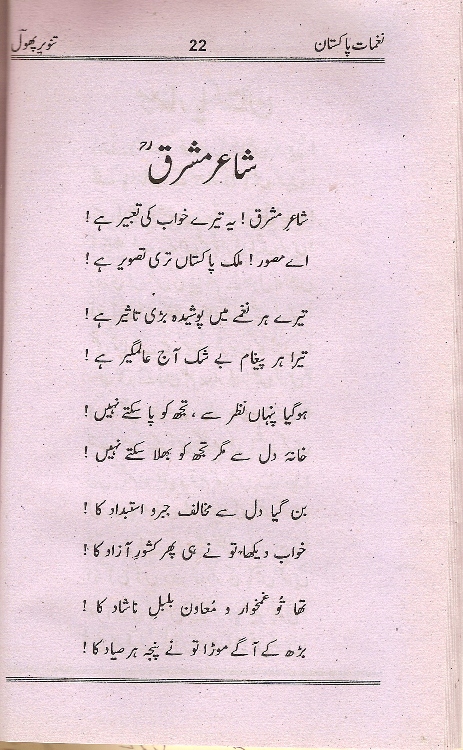 نغمات پاکستان 22 تنویر پھول
شاعرِ مشرقؒ
شاعرِ مشرق ! یہ تیرے خواب کی تعبیر ہے !
اے مصور ! ملک پاکستاں تری تصویر ہے !
تیرے ہر نغمے میں پوشیدہ بڑی تاثیر ہے !
تیرا ہر پیغام بے شک آج عالمگیر ہے !
ہوگیا پنہاں نظر سے ، تجھ کو پا سکتے نہیں !
خانۂ دل سے مگر تجھ کو بھلا سکتے نہیں !
بن گیا دل سے مخالف جبر و استبداد کا !
خواب دیکھا، تو نے ہی پھر کشورِ آزاد کا !
تھا تُو غمخوار و معاون بلبلِ ناشاد کا !
بڑھ کے آگے موڑا تو نے پنجہ ہر صیاد کا !